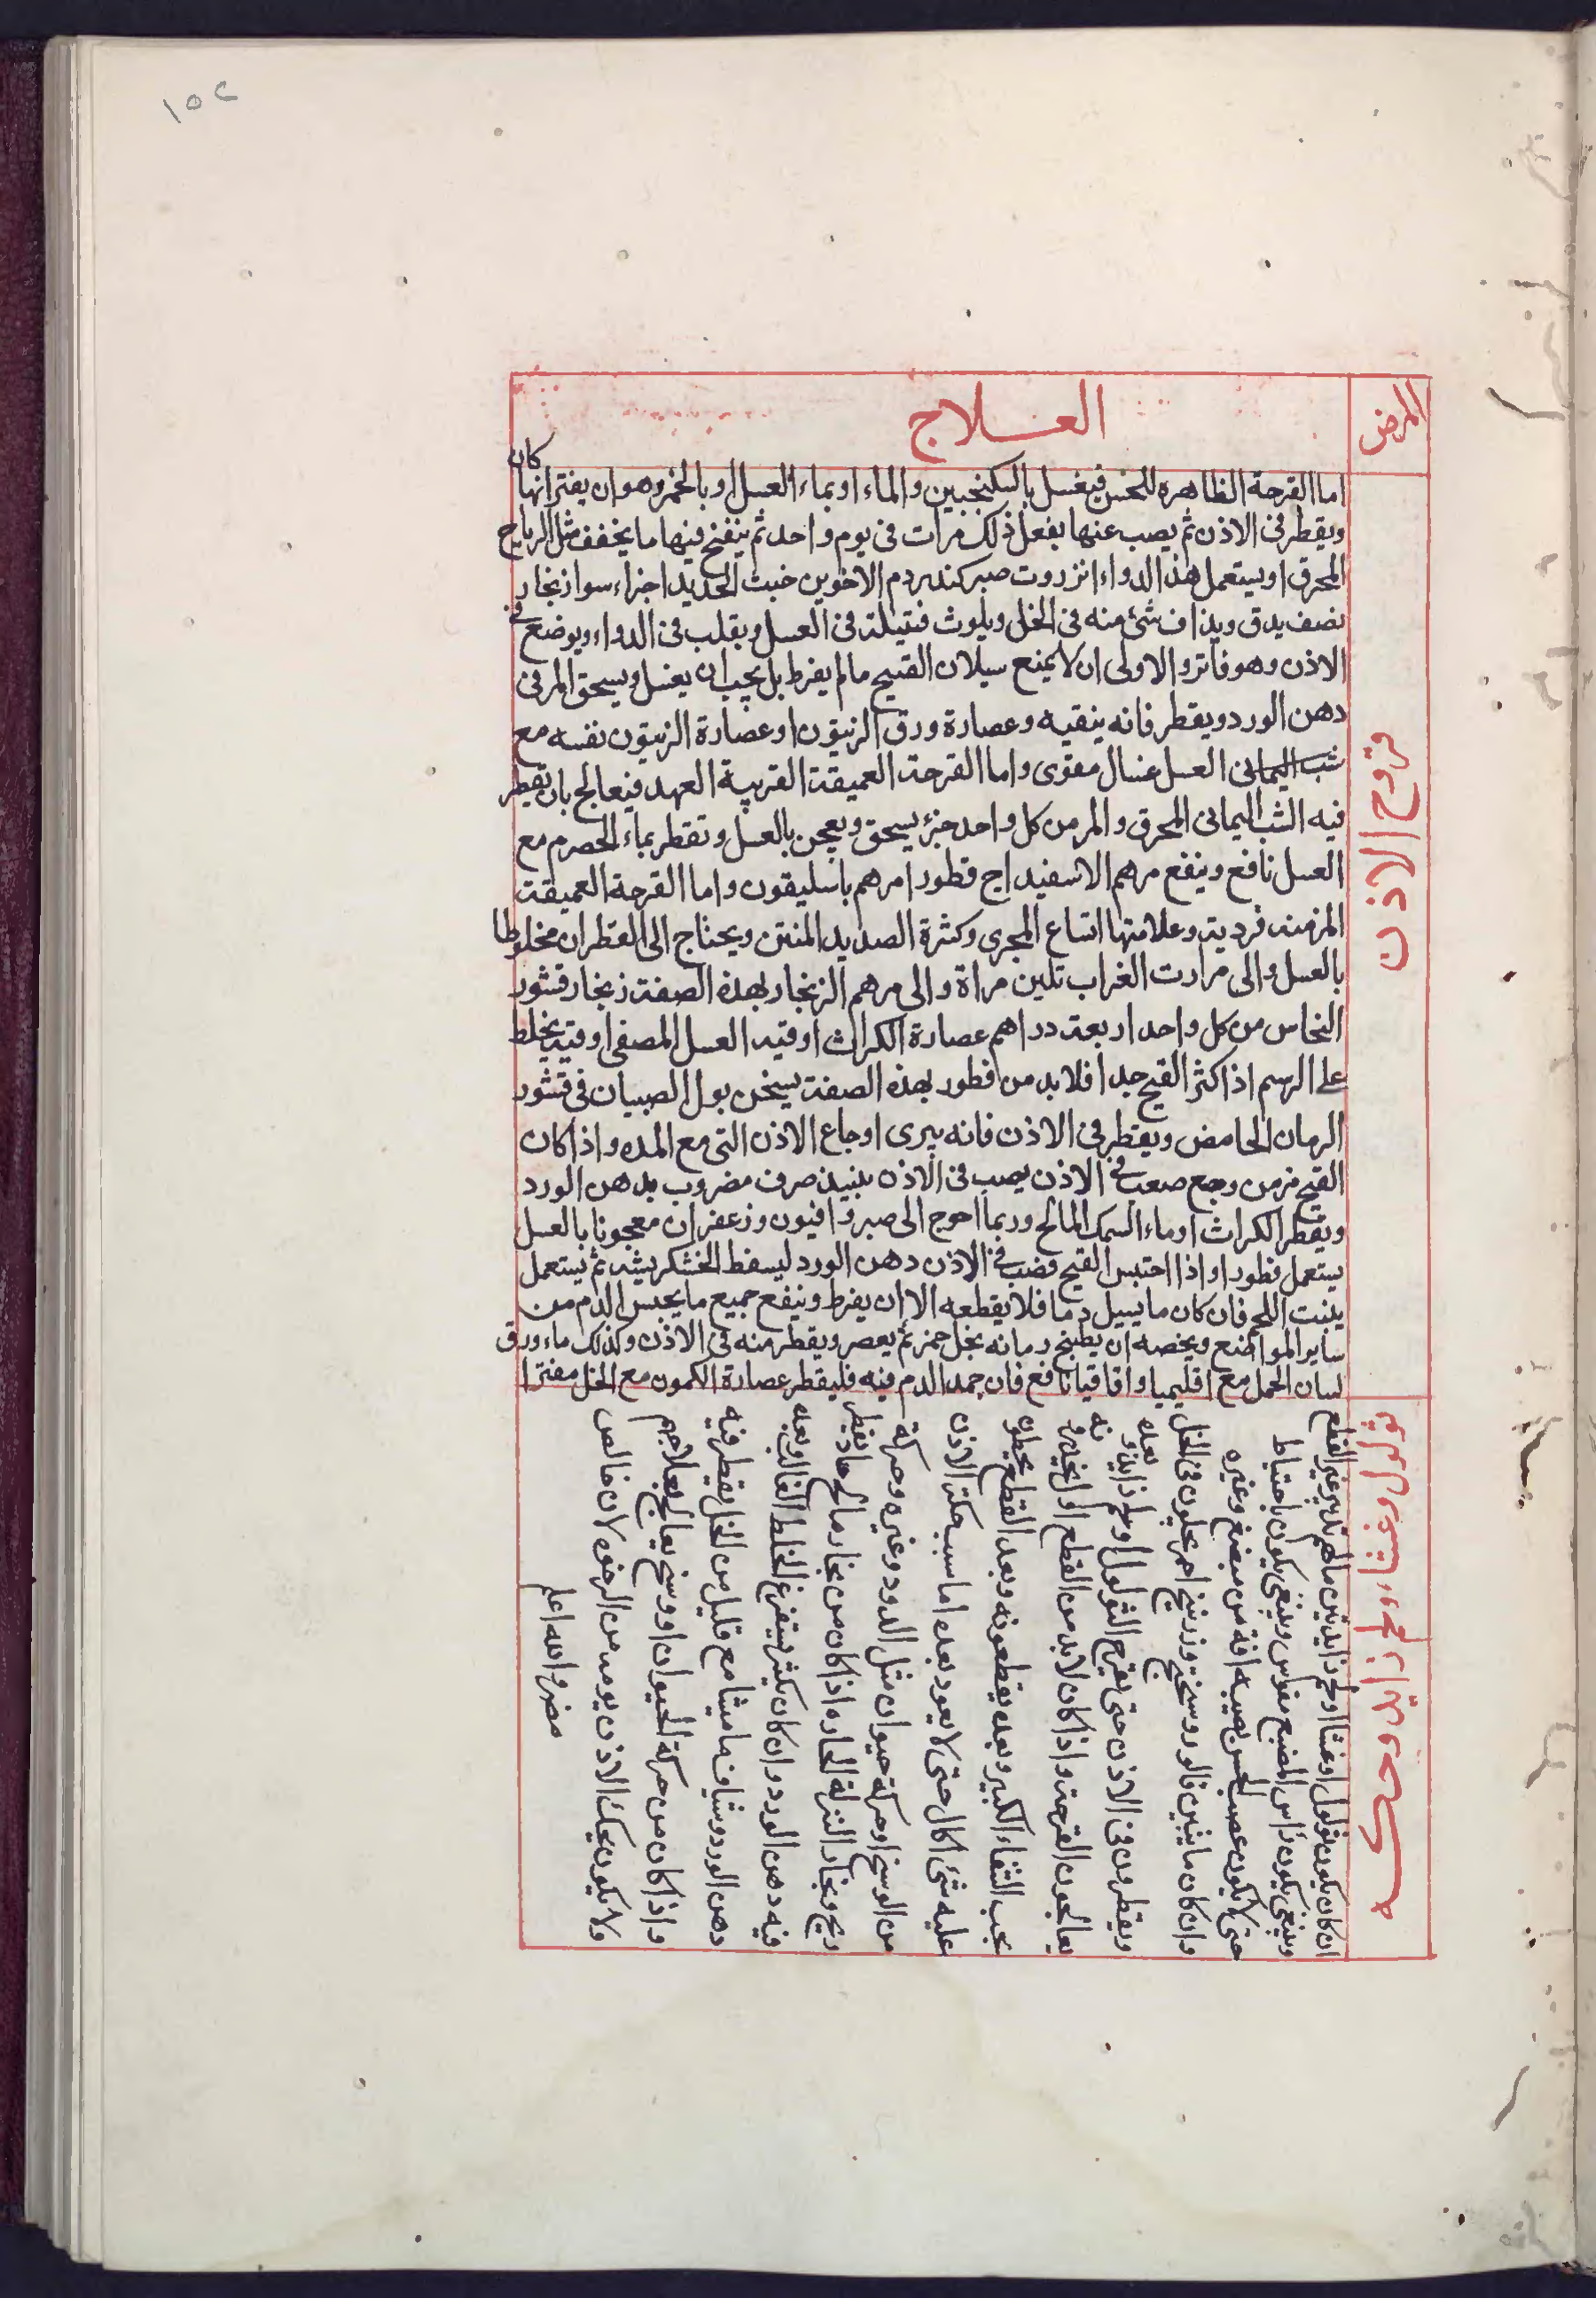 ١٥٢
المرض
العـــلاج
قروح الاذن
اما القرحة الظاهره للحس فيغسل بالسكنجبين والماء او بماء العسل او بالخمر وهو ان يفتر انها كان
ويقطر فى الاذن ثم يصب عنها يفعل ذلك مرات فى يوم واحد ثم ينفخ فيها ما يخفف مثل الرباج
المحرق او يستعمل هذا الدواء انزروت صبر كندر دم الاخوين خبث الحديد اجزاء سوا زنجار
نصف يدق ويذاف شئ منه فى الخل ويلوث فتيلة فى العسل ويقلب فى الدواء ويوضع فى
الاذن وهو فاتر والاولى ان لا يمنع سيلان القيح مالم يفرط بل يجب ان يغسل ويسحق المر فى
دهن الورد ويقطر فانه ينقيه وعصارة ورق الزيتون او عصارة الزيتون نفسه مع
شب اليمانى العسل غسال مقوى واما القرحة العميقة القريبة العهد فيعالج بان يقطر
فيه الشب اليمانى المحرق والمر من كل واحد جزء يسحق ويعجن بالعسل وتقطر بماء الحصرم مع
العسل نافع وينفع مرهم الاسفيداج قطورا مرهم باسليقون واما القرحة العميقة
المزمنه فرديه وعلامتها اتساع المجرى وكثرة الصديد المنتن ويحتاج الى القطران مخلوطا
بالعسل والى مرارت الغراب تلين مراة والى مرهم الزنجار بهذه الصفة زنجار قشور
النحاس من كل واحد اربعة دراهم عصارة الكراث اوقيه العسل المصفى اوقيه يخلط
على الرسم اذا كثر القيح جدا فلا بد من قطور بهذه الصفة يسخن بول الصبيان فى قشور
الرمان الحامض ويقطر فى الاذن فانه يبرى اوجاع الاذن التى مع المده واذا كان
القيح مزمن وجع صعب فى الاذن يصب فى الاذن نبيذ صرف مضروب بدهن الورد
ويقطر الكراث او ماء السمك المالح وربما احوج الى صبر وافيون وزعفران معجونا بالعسل
يستعمل قطورا واذا احتبس القيح فصب فى الاذن دهن الورد ليسقط الخشكريشه ثم يستعمل
ينبت اللحم فان كان ما يسيل دما فلا يقطعه الا ان يفرط وينفع جميع ما يحبس الدم من
ساير المواضع ويخصه ان يطبخ رمانه بخل خمر ثم يعصر ويقطر منه فى الاذن وكذلك ماء ورق
لسان الحمل مع اقليميا واقاقيا نافع فان جمد الدم فيه فليقطر عصارة الكمون مع الخل مفترا
ثولول وغشاء ولحم زايد
حكه
ان كان يكون ثولول او غشا او لحم زايد من مالهم تدبير غير القطع
وينبغى يكون راس المضبع مقوس وينبغى يكون باحتياط
حتى لا يكون عصب الحس يصيبه افة من مبضع وغيره
وان كان ما يبين فالروسختج وزرنيخ احمر يحلون فى الخل
ويقطرون فى الاذن حتى يقرح الثولول او لحم زايد و بعده
يعالجون القرحة واذا كان لابد من القطع اول يخدرو نه
بحب الشفاء الكبير وبعده يقطعونه وبعد القطع يحطون
عليه شئ اكال حتى لا يعود بعده اما سبب حكة الاذن
من الوسخ او حركة حيوان مثل الدود وغيره وحركة
ريح وبخار النزلة الحاره اذا كان من بخار مالح حاد يقطر
فيه دهن الورد وان كان يكثر يستفرغ الخلط الغالب وبعده
دهن الورد وشياف ماميثا مع قليل من الخل يقطر فيه
واذا كان من حركة الحيوان او وسخ يعالج بعلاجهم
ولا يكون يحك الاذن يومه من الرخوه لان خالص
مضر والله اعلم